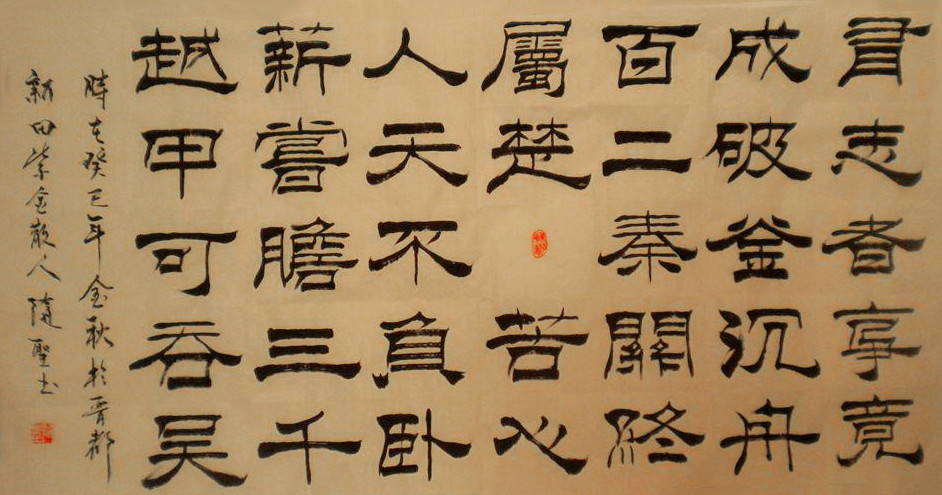 有志者事竟
成破釜沉舟
百二秦關終
屬楚苦心
人天不負卧
薪嘗膽三千
越甲可吞吴
時在癸巳年金秋於晋都
新田紫金散人隨聖书